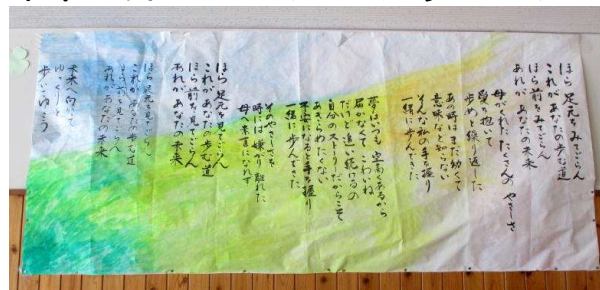 ほら 足元をみてごらん
これがあなたの歩む道
ほら前をみてごらん
あれが あなたの未来
母がくれた たくさんの やさしさ
愛を抱いて
歩めと繰り返した
あの時は まだ幼くて
意味など知らない
そんな私の手を握り
一緒に歩んできた
夢はいつも 空高くあるから
届かなくて こわいね
だけど追い続けるの
自分のストーリーだからこそ
あきらめたくない
不安になると手を握り
一緒に歩んできた
そのやさしさを
時には嫌がり離れた
母へ素直になれず
ほら足元を見てごらん
これがあなたの歩む道
ほら前を見てごらん
あれがあなたの未来
ほら足元を見てごらん
これがあなたの歩む道
ほら前を見てごらん
あれがあなたの未来
未来へ向かって
ゆっくりと
歩いてゆこう